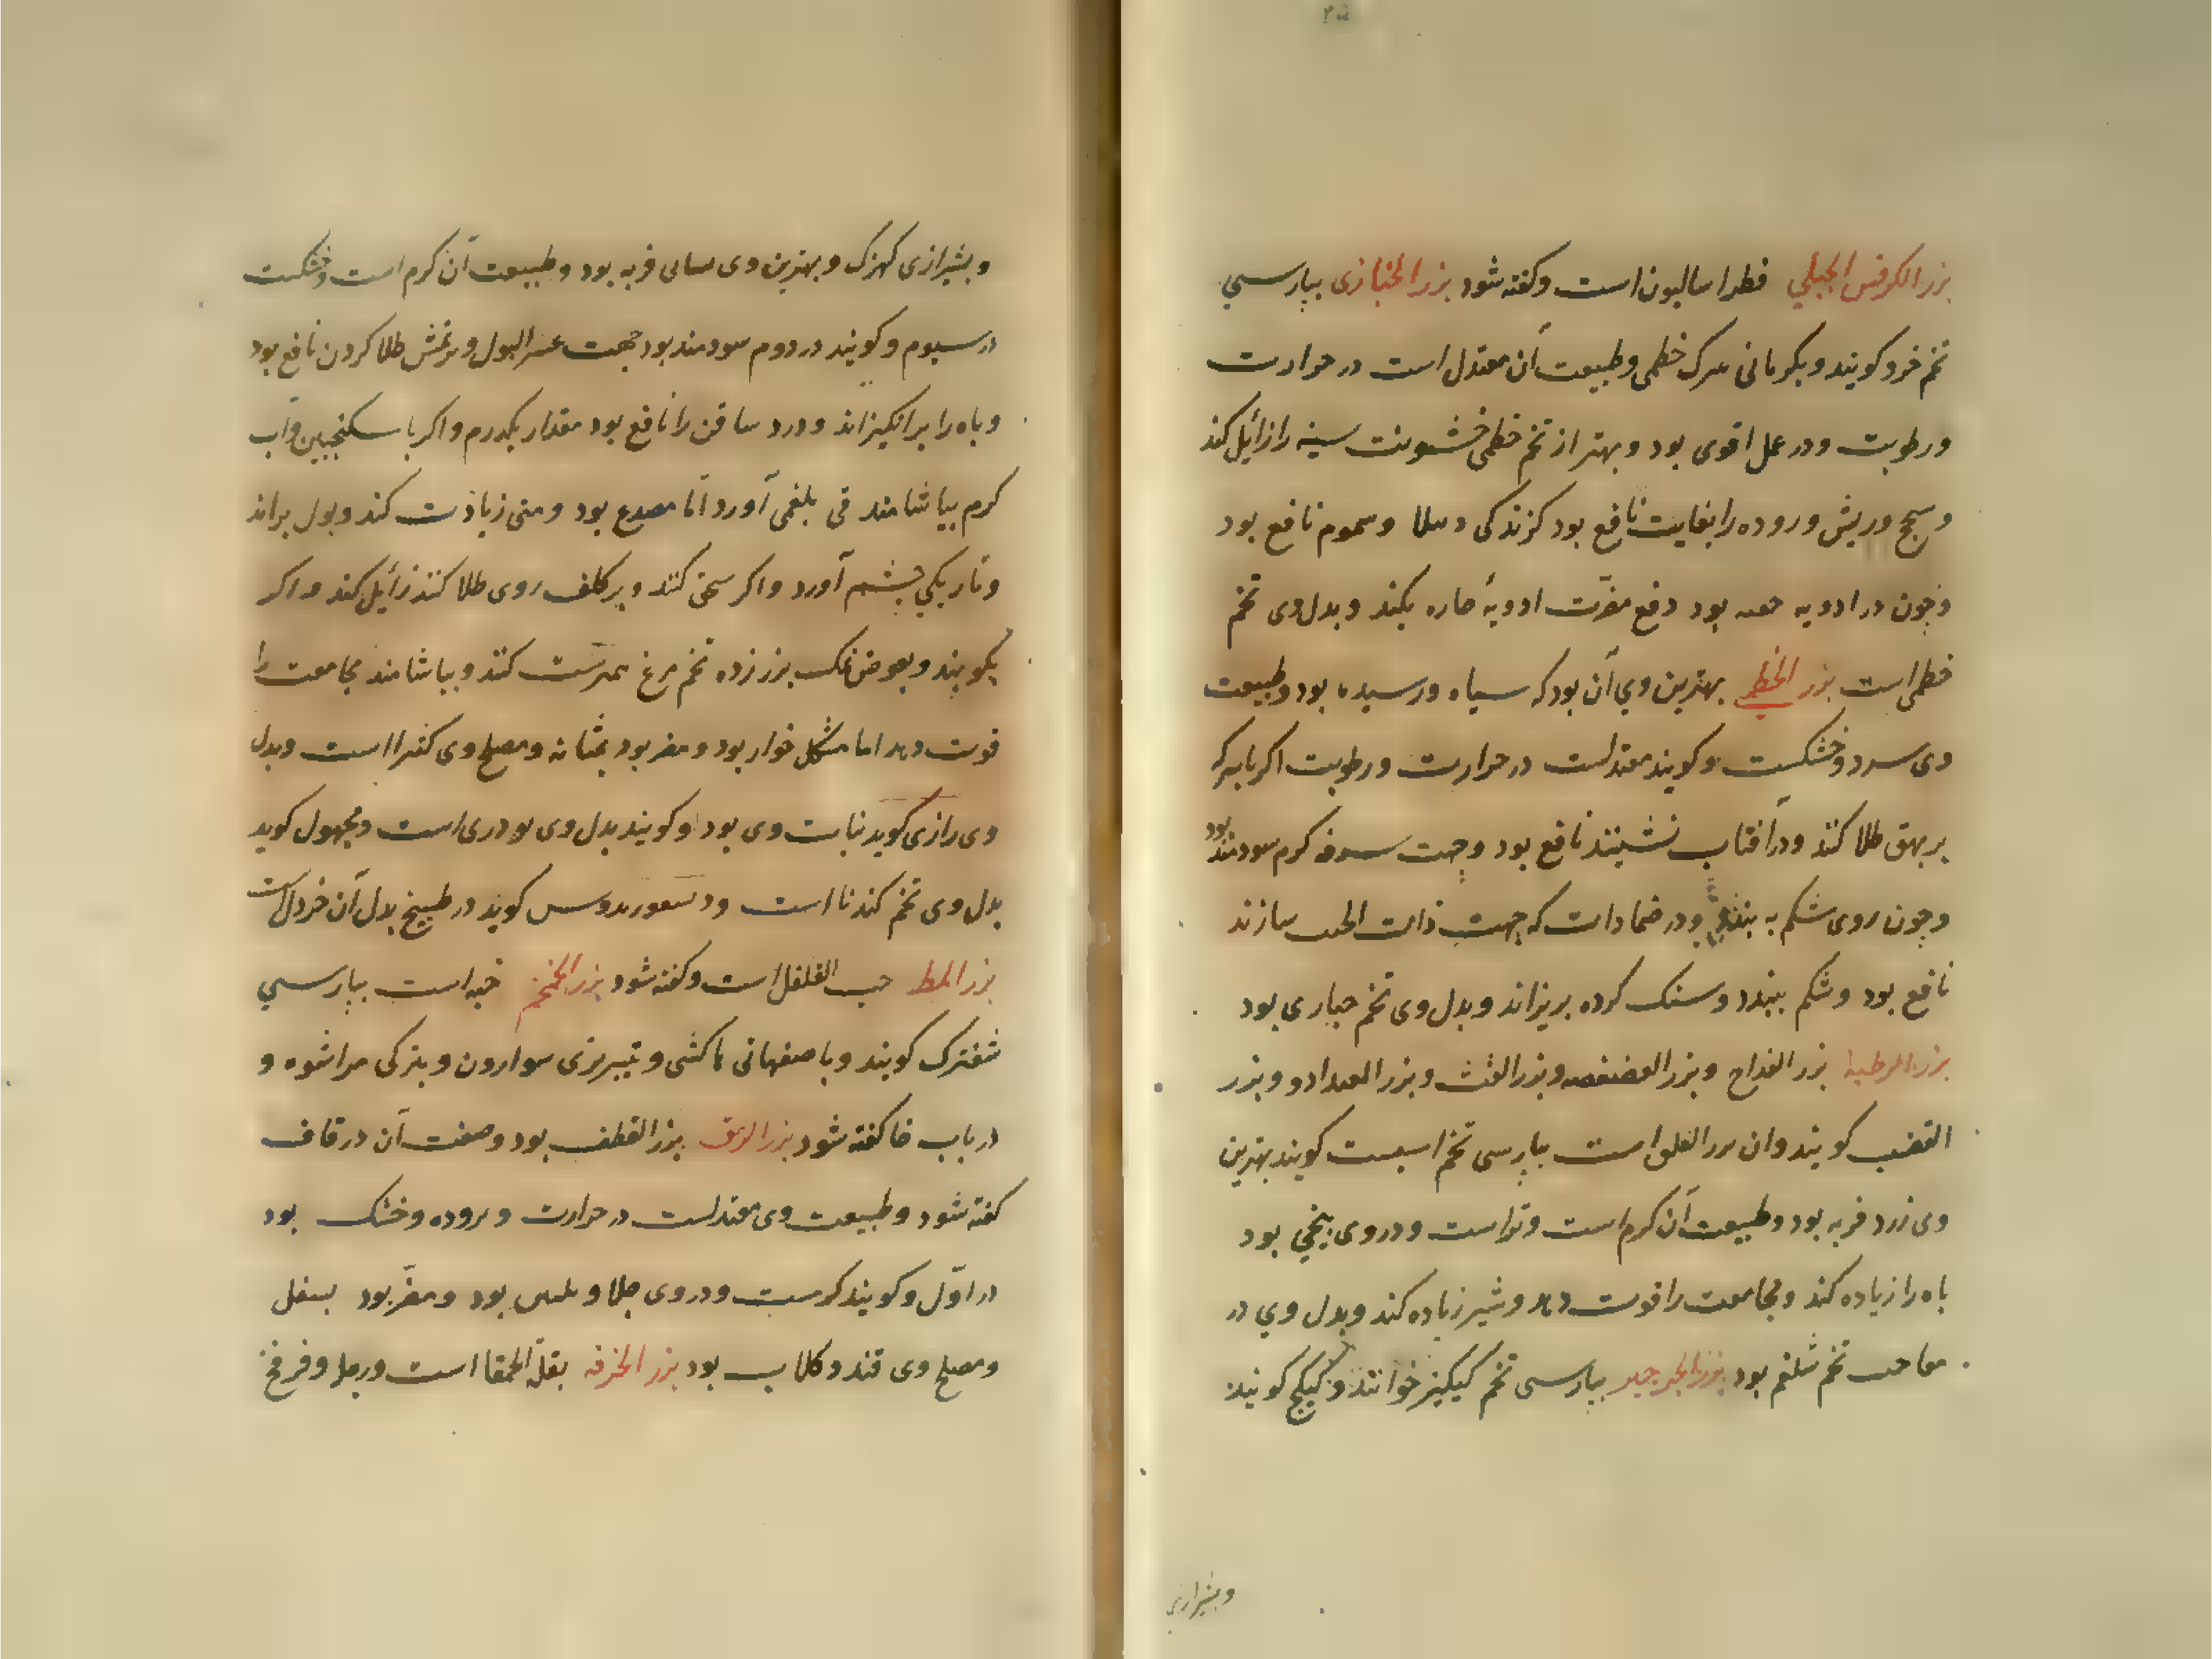 ۲۵
بزر الکرفس الجبلي فطراسالیون است وکفته شود بزر الخبازی بپارسي
تخم خرو کویند وبکرمانی خطمی وطبیعت آن معتدل است در حرارت
ورطوبت ودر عمل اقوی بود وبهتر از تخم خطمی خشونت سینه را زائل کند
وسحج وریش وروده را بغایت نافع بود کزندکی وسموم نافع بود
وچون در ادویه حقنه بود دفع مضرّت ادویهٔ حاره بکند وبدل وی تخم
خطمی است بزر الخطمي بهترین وي آن بود که سیاه ورسیده بود وطبیعت
وی سرد وخشکست وکویند معتدلست در حرارت ورطوبت اکر با سرکه
بر بهق طلا کنند ودر آفتاب نشینند نافع بود وجهت سرفه کرم سودمند بود
وچون روی شکم به بندد ودر ضمادات که جهت ذات الجنب سازند
نافع بود وشکم ببندد وسنک کرده بریزاند وبدل وی تخم خبازی بود
بزر الرطبة بزر القداح وبزر الفصفصه وبزر القت وبزر وبزر
القضب کویند وان بزر است بپارسی تخم اسبست کویند بهترین
وی زرد فربه بود وطبیعت آن کرم است وتر است ودر وی نفخي بود
باه را زیاده کند ومجامعت را قوت دهد وشیر زیاده کند وبدل وي در
تخم شلغم بود بزر الجرجیر بپارسی تخم کیکیز خوانند و کیکج کویند
وبشیرازی
وبشیرازی کهزک وبهترین وی فربه بود وطبیعت آن کرم است وخشکست
در سیوم وکویند در دوم سودمند بود جهت عسر البول وبرنمش طلا کردن نافع بود
وباه را برانکیزاند ودرد را نافع بود مقدار یکدرم واکر با سکنجبین وآب
کرم بیاشامند قی بلغمی آورد امّا مصدع بود ومنی زیادت کند وبول براند
وتاریکي چشم آورد واکر سحق کنند وبر کلف روی طلا کنند زائل کند واکر
بکوبند وبعوض نمک بزر زده تخم مرغ نیمبرشت کنند وبیاشامند مجامعت را
قوت دهد اما مشکل خوار بود ومضر بود بمثانه ومصلح وی کثیرا است وبدل
وی رازی کوید نبات وی بود وکویند بدل وی بودری است ومجهول کوید
بدل وی تخم کندنا است ودیسقوریدوس کوید در طبیخ بدل آن خردل است
بزر حب الفلفل است وکفته شود بزر الخمخم خبه است بپارسي
شفترک کویند وباصفهانی کشی وتبریزی سوارون وبترکی مراشوه و
در باب خا کفته شود بزر السرمق بزر القطف بود وصفت آن در قاف
کفته شود وطبیعت وی معتدلست در حرارت وبروده وخشک بود
در اوّل وکویند کرمست ودر وی جلا بود ومضّر بود بسفل
ومصلح وی قند وکلاب بود بزر الخرفه بقلة الحمقا است ورجل وفرفخ